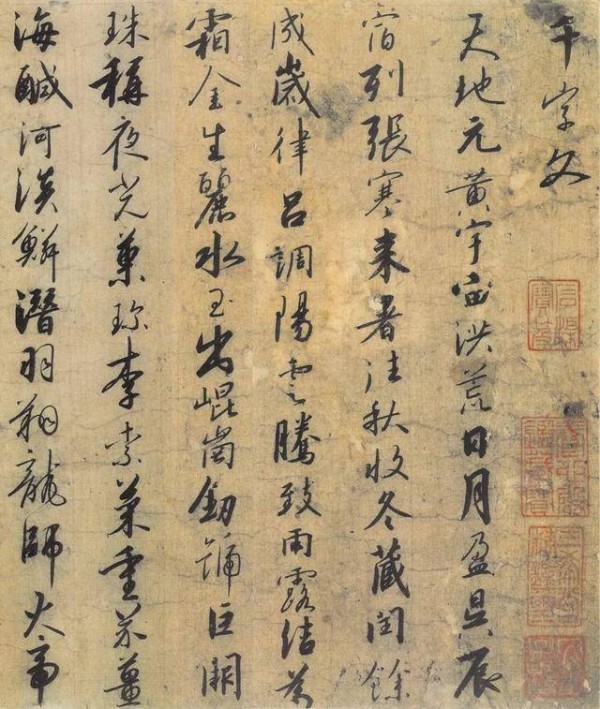 千字文
天地元黃宇宙洪荒日月盈昃辰
宿列張寒来暑往秋收冬藏閏餘
成歲律呂調陽雲騰致雨露結為
霜金生麗水玉出崐崗劔號巨闕
珠稱夜光菓珍李柰菜重芥薑
海鹹河淡鱗潛羽翔龍師火帝